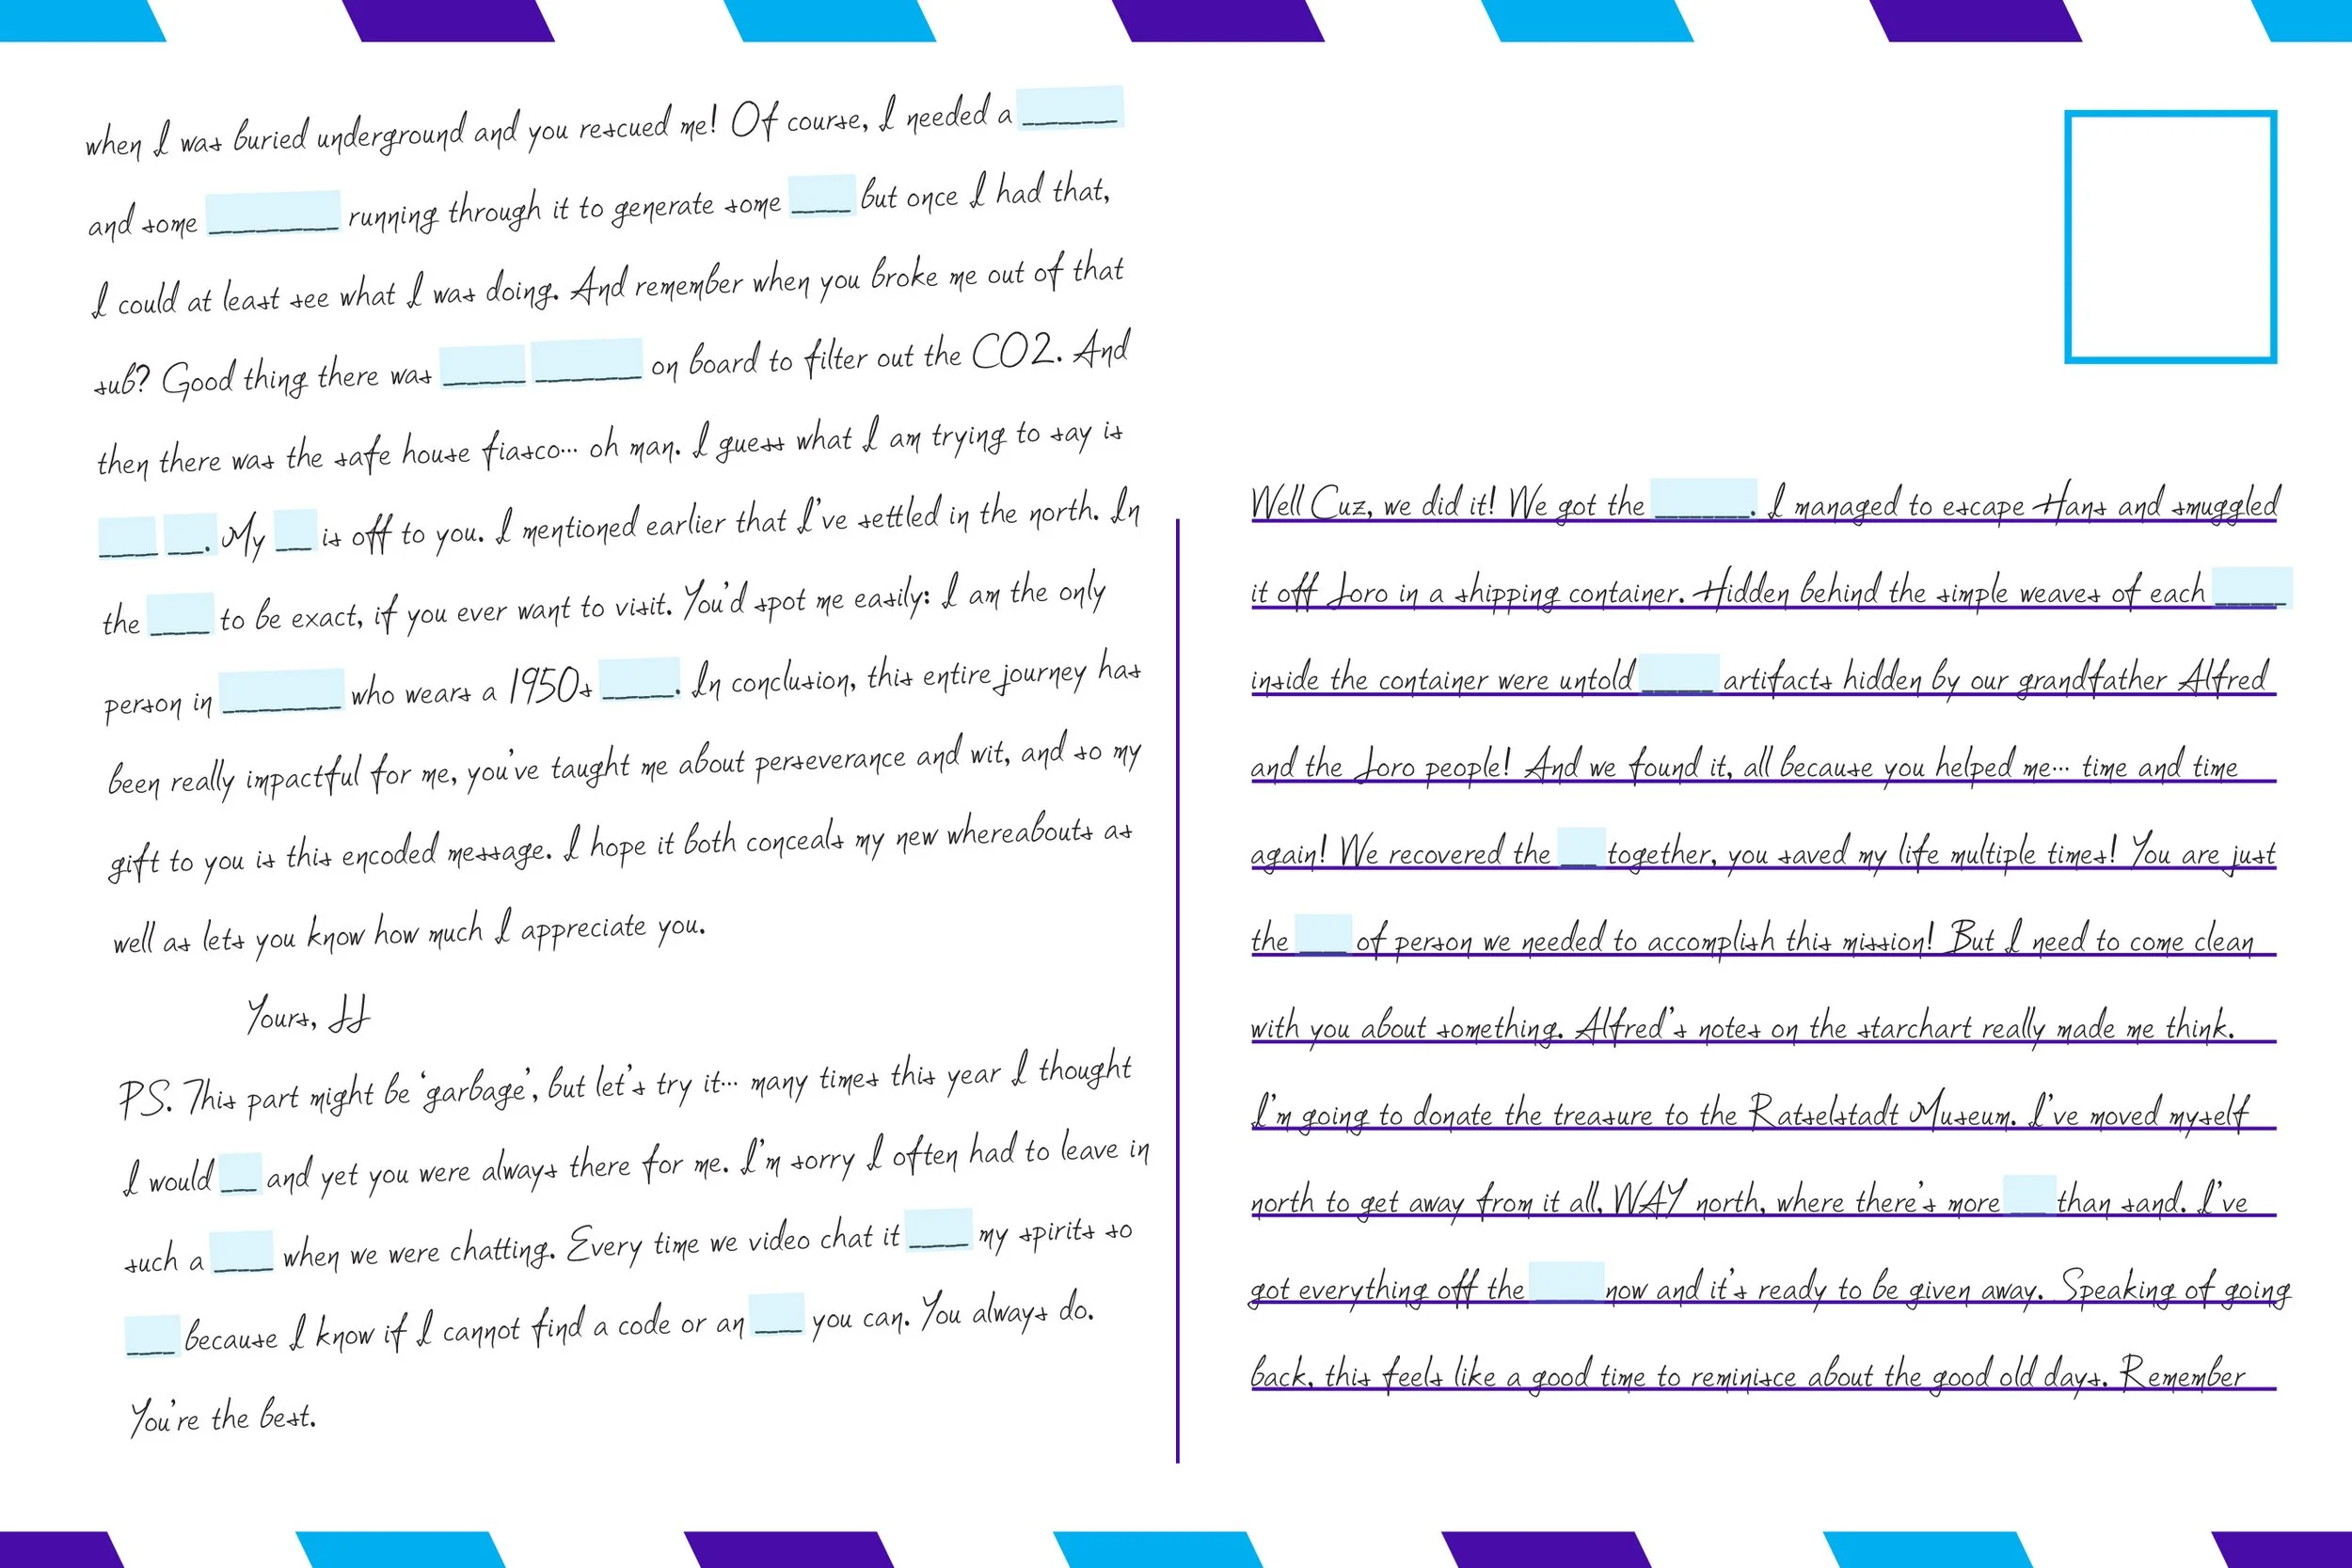 Well Cuz, we did it! We got the ______. I managed to escape Hans and smuggled
it off Joro in a shipping container. Hidden behind the simple weaves of each _____
inside the container were untold _____ artifacts hidden by our grandfather Alfred
and the Joro people! And we found it, all because you helped me... time and time
again! We recovered the ___ together, you saved my life multiple times! You are just
the ____ of person we needed to accomplish this mission! But I need to come clean
with you about something. Alfred's notes on the starchart really made me think.
I'm going to donate the treasure to the Ratselstadt Museum. I've moved myself
north to get away from it all, WAY north, where there's more ___ than sand. I've
got everything off the ____ now and it's ready to be given away. Speaking of going
back, this feels like a good time to reminisce about the good old days. Remember
when I was buried underground and you rescued me! Of course, I needed a ______
and some ________ running through it to generate some ____ but once I had that,
I could at least see what I was doing. And remember when you broke me out of that
sub? Good thing there was _____ ______ on board to filter out the CO2. And
then there was the safe house fiasco... oh man. I guess what I am trying to say is
____ ___. My ___ is off to you. I mentioned earlier that I've settled in the north. In
the ____ to be exact, if you ever want to visit. You'd spot me easily: I am the only
person in ________ who wears a 1950s _____. In conclusion, this entire journey has
been really impactful for me, you've taught me about perseverance and wit, and so my
gift to you is this encoded message. I hope it both conceals my new whereabouts as
well as lets you know how much I appreciate you.
Yours, JJ
PS. This part might be 'garbage', but let's try it... many times this year I thought
I would ___ and yet you were always there for me. I'm sorry I often had to leave in
such a ____ when we were chatting. Every time we video chat it ____ my spirits so
____ because I know if I cannot find a code or an ____ you can. You always do.
You're the best.